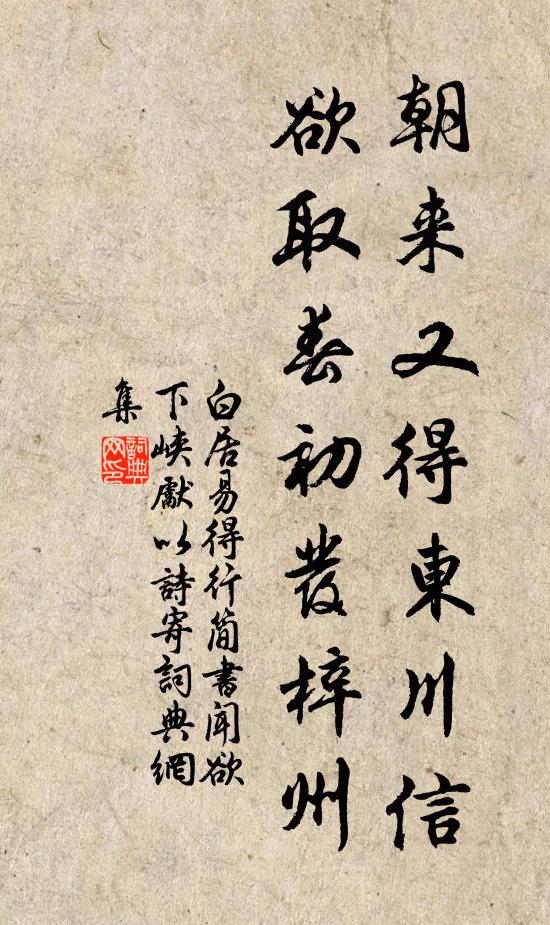 朝来又得東川信
欲取春初發梓州
白居易得行简書聞欲
下峡獻以詩寄詞典網
集
詞典
网印